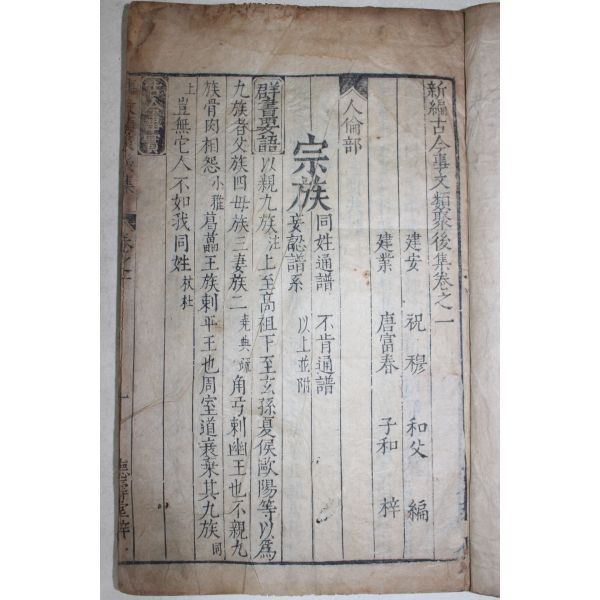 新編古今事文類聚後集卷之一
建安 祝穆 和父 編
建業 唐富春 子和 梓
人倫部
宗族 同姓通譜 不肯通譜
妄認譜系 以上並附
群書要語 以親九族 注 上至高祖下至玄孫夏侯歐陽等以爲
九族者父族四母族三妻族二 堯典疏 角弓刺幽王也不親九
族骨肉相怨 小雅 葛藟王族刺平王也周室道衰棄其九族 同
上 豈無它人不如我同姓 杕杜
古今事實